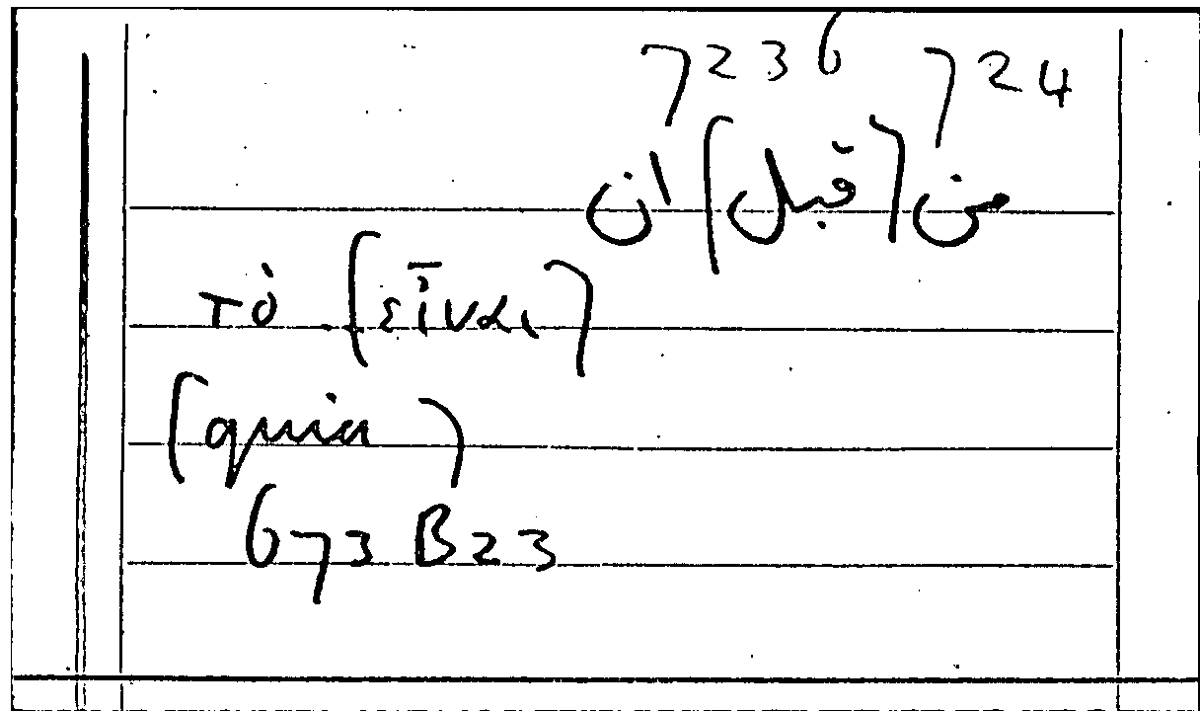 7236 724
من [قبل] ان
τὸ [εἶναι]
[quia]
673 B23